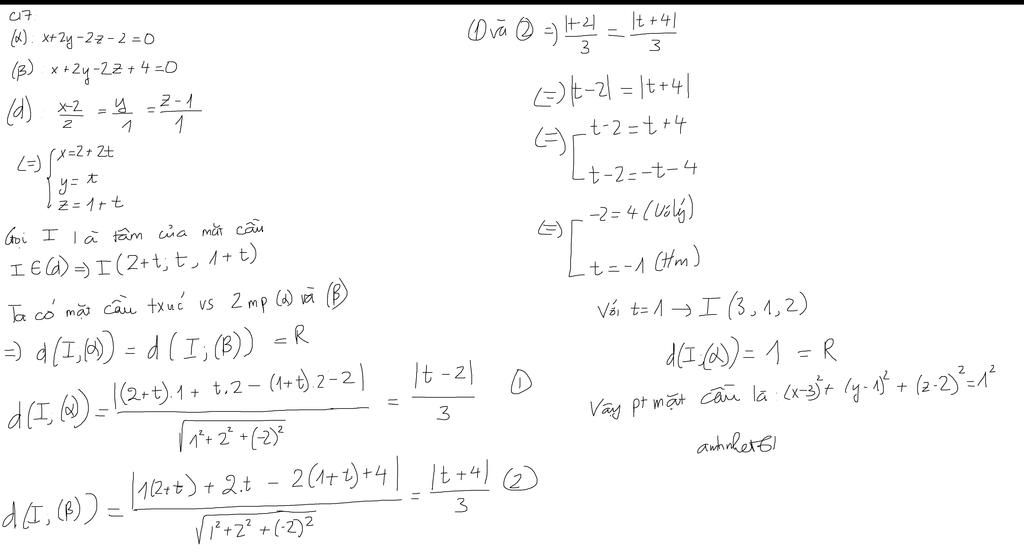 C17
(α): x+2y-2z-2=0
(β) x+2y-2z+4=0
(d): (x-2)/2 = y/1 = (z-1)/1
(=) { x=2+2t
y= t
z=1+t
Gọi I là tâm của mặt cầu
I∈(d) => I(2+t; t, 1+t)
Ta có mặt cầu txuć vs 2 mp (α) và (β)
=) d(I,(α)) = d(I;(β)) = R
d(I,(α)) = |(2+t).1 + t.2 - (1+t).2-2| / √(1²+2²+(-2)²) = |t-2|/3 ①
d(I,(β)) = |1(2+t) + 2.t - 2(1+t)+4| / √(1²+2²+(-2)²) = |t+4|/3 ②
① và ② =) |t-2|/3 = |t+4|/3
(=) |t-2| = |t+4|
(=) [ t-2 = t+4
t-2 = -t-4
(=) [ -2=4 (Vô lý)
t=-1 (Hm)
Với t=1 → I(3,1,2)
d(I;(α)) = 1 = R
Vậy pt mặt cầu là: (x-3)² + (y-1)² + (z-2)² = 1²